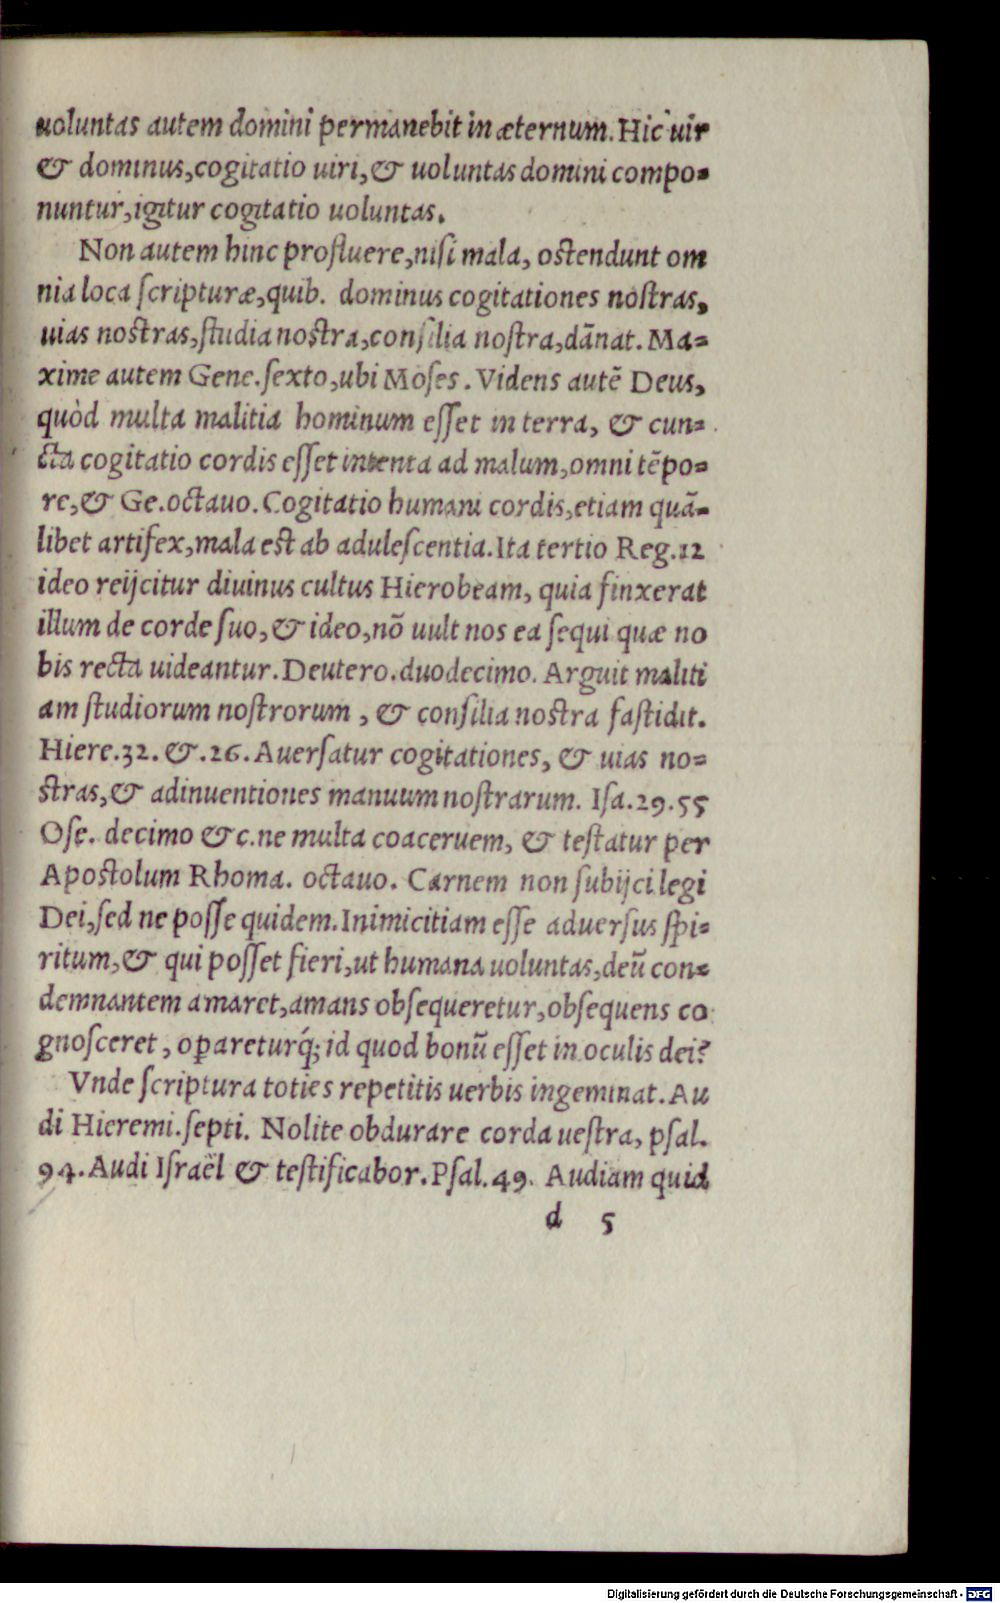 uoluntas autem domini permanebit in æternum. Hic uir
& dominus, cogitatio uiri, & uoluntas domini compo=
nuntur, igitur cogitatio uoluntas.
Non autem hinc profluere, nisi mala, ostendunt om
nia loca scripturæ, quib. dominus cogitationes nostras,
uias nostras, studia nostra, consilia nostra, dānat. Ma=
xime autem Gene. sexto, ubi Moses. Videns autē Deus,
quòd multa malitia hominum esset in terra, & cun=
cta cogitatio cordis esset intenta ad malum, omni tēpo=
re, & Ge. octauo. Cogitatio humani cordis, etiam quā=
libet artifex, mala est ab adulescentia. Ita tertio Reg. 12
ideo reijcitur diuinus cultus Hierobeam, quia finxerat
illum de corde suo, & ideo, nō uult nos ea sequi quæ no
bis recta uideantur. Deutero. duodecimo. Arguit maliti
am studiorum nostrorum, & consilia nostra fastidit.
Hiere. 32. &. 26. Auersatur cogitationes, & uias no=
stras, & adinuentiones manuum nostrarum. Isa. 29. 55
Ose. decimo &c. ne multa coaceruem, & testatur per
Apostolum Rhoma. octauo. Carnem non subijci legi
Dei, sed ne posse quidem. Inimicitiam esse aduersus spi=
ritum, & qui posset fieri, ut humana uoluntas, deū con=
demnantem amaret, amans obsequeretur, obsequens co
gnosceret, oꝑareturq́; id quod bonū esset in oculis dei?
Vnde scriptura toties repetitis uerbis ingeminat. Au
di Hieremi. septi. Nolite obdurare corda uestra, psal.
94. Audi Israël & testificabor. Psal. 49. Audiam quid
d 5
Digitalisierung gefördert durch die Deutsche Forschungsgemeinschaft - DFG